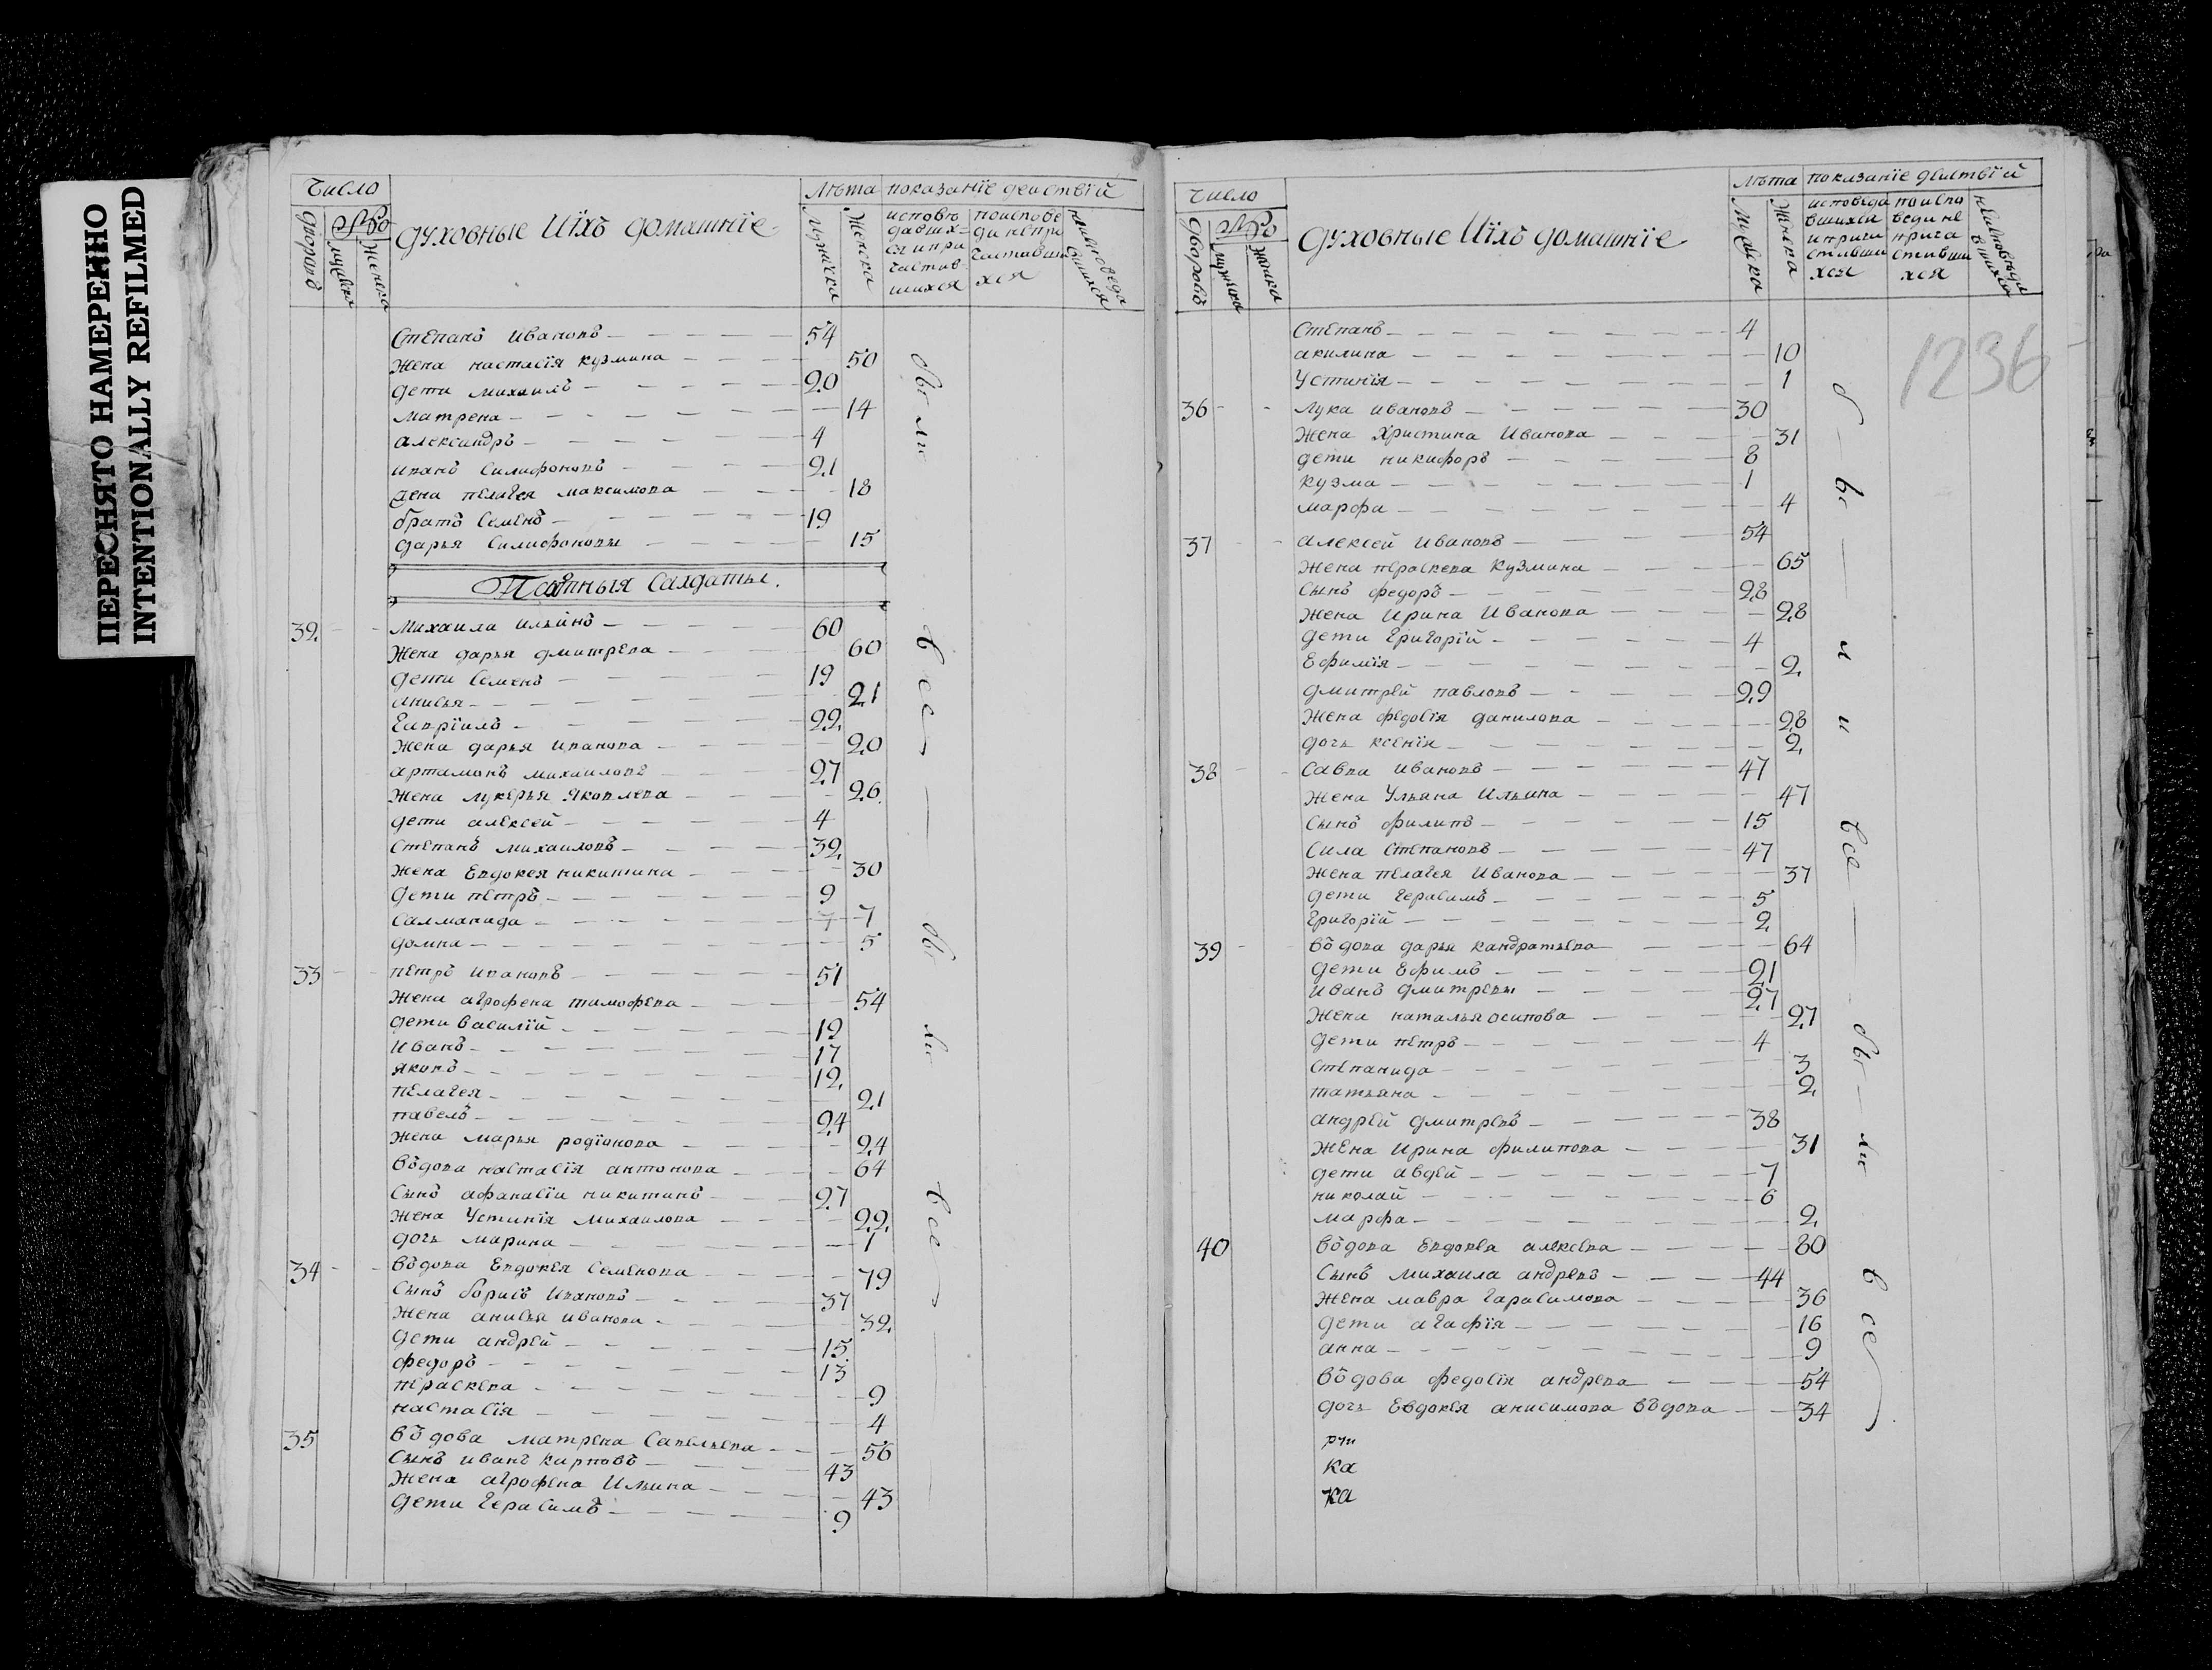 ПЕРЕСНЯТО НАМЕРЕННО
INTENTIONALLY REFILMED
Число
дворовъ
мужеска
женска
духовные Иіхъ домашніе
Лѣта
мужеска
женска
показаніе деиствіи
исповѣ
давших=
ся и при
частив
шихся
поиспове
ди непри
частивши
хся
Степанъ Ивановъ 54
Жена настасія кузмина 50
дети михаилъ 20
матрена 14
александръ 4
иванъ Силифоновъ 21
жена пелагея максимова 18
братъ Семенъ 19
дарья Силифоновы 15
Салдаты.
32 михаила ильинъ 60
Жена дарья дмитрева 60
дети Семенъ 19
анисья 21
Гавріилъ 22
жена дарья иванова 20
артамонъ михаиловъ 27
жена лукерья яковлева 26
дети алексей 4
Степанъ михаиловъ 32
жена Евдокея никитина 30
дети петръ 9
Салманида 7
домна 5
33 петръ ивановъ 51
Жена агрофена тимофева 54
дети василіи 19
Иванъ 17
яковъ 12
пелагея 21
павелъ 24
жена марья родіонова 24
вдова настасія антонова 64
сынъ афанасіи никитинъ 27
жена Устинія михаилова 22
дочь марина 1
34 вдова Евдокея Семенова 79
Сынъ борисъ Ивановъ 37
жена анисья иванова 32
дети андрей 15
федоръ 13
праскева 9
настасія 4
35 въдова матрена Савельева 56
Сынъ иванъ карповъ 43
жена агрофена Ильина 43
дети герасимъ 9
были
все
были
все
Число
дворовъ
мужеска
женска
духовные Иіхъ домашніе
Лѣта
мужеска
женска
показаніе деиствіи
исповеда
вшихся
и прича
стивши
хся
поиспо
веди не
прича
стивши
хся
1236
Степанъ 4
акилина 10
Устинія 1
36 лука ивановъ 30
Жена Христина Иванова 31
дети никифоръ 8
кузма 1
марфа 4
37 алексей Ивановъ 54
жена праскева кузмина 65
Сынъ федоръ 28
жена Ирина Иванова 28
дети Григоріи 4
Ефимія 2
дмитрей павловъ 29
жена федосія данилова 28
дочь ксенія 2
38 Савва ивановъ 47
Жена Ульяна Ильина 47
Сынъ филипъ 15
Сила Степановъ 47
жена пелагея Иванова 37
дети герасимъ 5
Григоріи 2
39 въдова дарья кандратьева 64
дети Ефимъ 21
иванъ дмитревы 27
жена наталья осипова 27
дети петръ 4
Степанида 3
татьяна 2
андрей дмитревъ 38
жена Ирина филипова 31
дети авдей 7
николай 6
марфа 2
40 въдова Евдокея алексева 80
Сынъ михаила андревъ 44
жена мавра гарасимова 36
дети агафія 16
анна 9
въдова федосія андрева 54
дочь Евдокея анисимова въдова 34
ка
ка
были
все
были
все